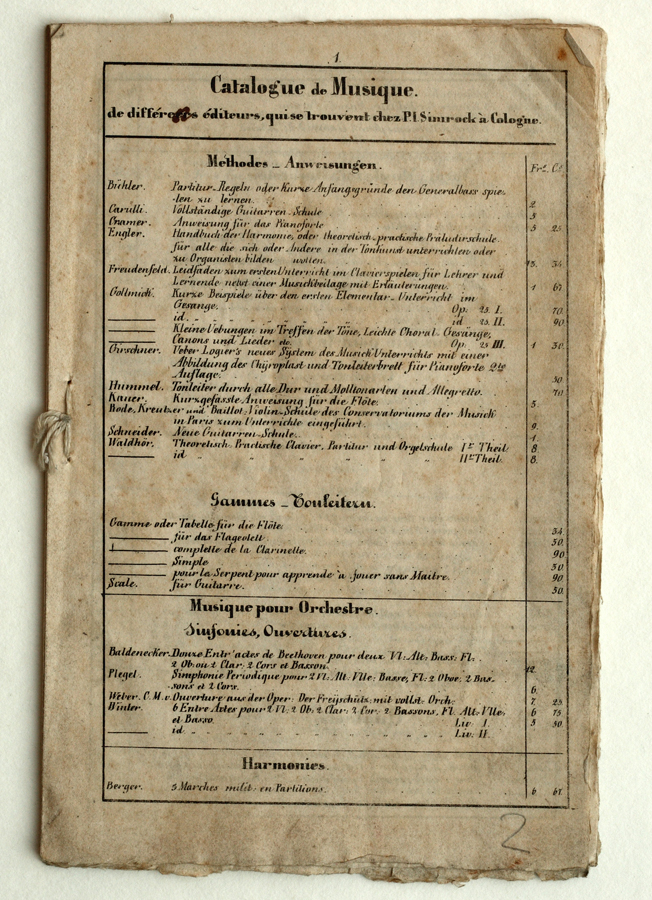 1.
Catalogue de Musique.
de différents éditeurs, qui se trouvent chez P. I. Simrock à Cologne.
Methodes _ Anweisungen. Frs. Ct.
Bühler. Partitur-Regeln oder Kurze Anfangsgründe den Generalbass spie-
len zu lernen. 2
Carulli. Vollständige Guitarren-Schule 3
Cramer. Anweisung für das Pianoforte 5 25
Engler. Handbuch der Harmonie, oder theoretisch-practische Präludirschule
für alle die sich oder Andere in der Tonkunst unterrichten oder
zu Organisten bilden wollen. 13. 34
Freudenfeld. Leidfaden zum ersten Unterricht im Clavierspielen für Lehrer und
Lernende nebst einer Musickbeilage mit Erläuterungen. 1 67
Gollmick. Kurze Beispiele über den ersten Elementar-Unterricht im
Gesange. Op. 23. I. 70
id. id. 23. II. 90
Kleine Uebungen im Treffen der Töne, Leichte Choral-Gesänge,
Canons und Lieder etc. Op. 23 III. 1 30.
Girschner. Ueber Logier's neues System des Musick Unterrichts mit einer
Abbildung des Chyroplast und Tonleiterbrett für Pianoforte 2te
Auflage. 50
Hummel. Tonleiter durch alle Dur und Molltonarten und Allegretto. 70
Kauer. Kurzgefässte Anweisung für die Flöte. 3
Rode, Kreutzer und Baillot, Violin-Schule des Conservatoriums der Musick
in Paris zum Unterrichte eingeführt. 9.
Schneider. Neue Guitarren-Schule. 1.
Waldhör. Theoretisch-Practische Clavier, Partitur und Orgelschule Ir Theil 8
id II r Theil. 8.
Gammes _ Tonleitern.
Gamme oder Tabelle für die Flöte. 34
für das Flageolett. 50.
complette de la Clarinette. 90
Simple 50
pour le Serpent pour apprende à jouer sans Maitre. 90
Scale. für Guitarre. 50.
Musique pour Orchestre.
Sinfonies, Ouvertures.
Baldenecker. Douze Entr'actes de Beethoven pour deux Vl: Alt: Bass: Fl:
2 Ob: ou 2 Clar: 2 Cors et Basson. 12.
Plegel. Simphonie Periodique pour 2 Vl: Alt: Vlle: Basse, Fl: 2 Oboe: 2 Bas-
sons et 2 Cors. 6.
Weber. C. M. v. Ouverture aus der Oper: Der Freischütz, mit vollst: Orch: 7 25
Winter. 6 Entre Actes pour 2 Vl: 2 Ob: 2 Clar: 2 Cor: 2 Bassons, Fl. Alt: Vlle, 6 75
et Basso. Liv: I. 5 50
id. Liv: II.
Harmonies.
Berger. 5 Marches milit: en Partitions. 6 67
2